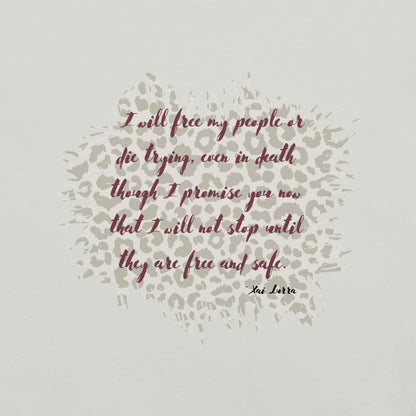 I will free my people or
die trying, even in death
though I promise you now
that I will not stop until
they are free and safe.
Xai Lurra